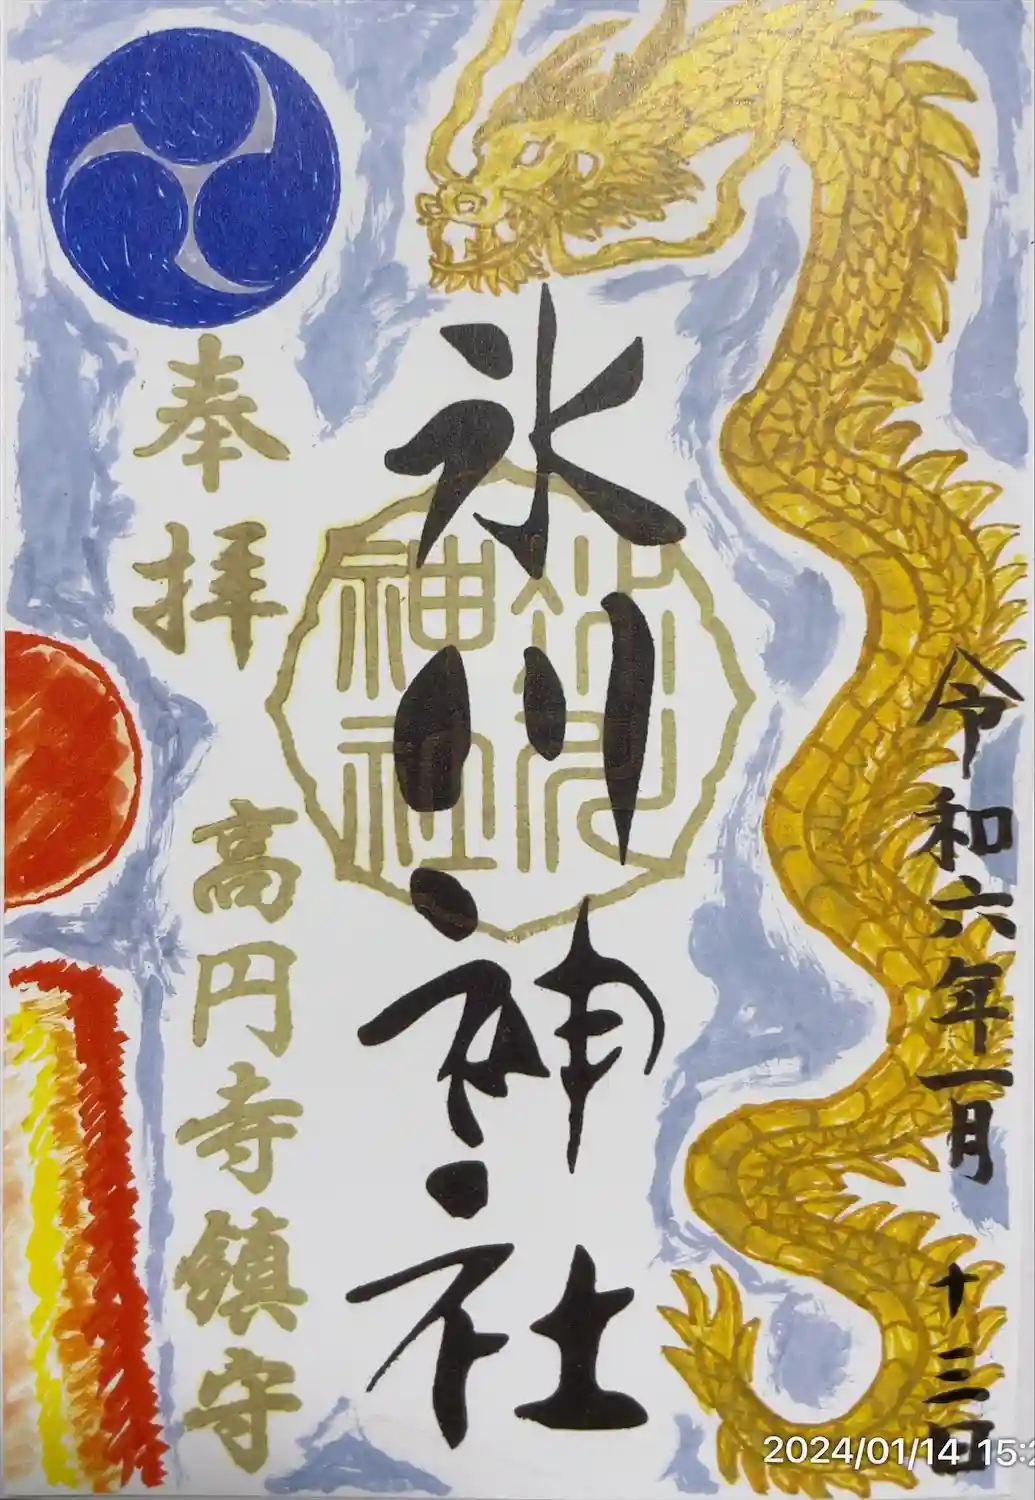 令和六年一月
十三日
氷川神社
氷川
神社
奉拝
高円寺鎮守
2024/01/14 15:2